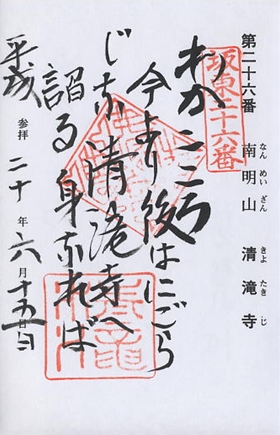 第二十六番 南明山 清滝寺
なんめいざん きよたきじ
坂東二十六番
わかこころ
今より後はにごら
じな清滝寺へ
詣る身なれば
平成 参拝 二十年六月十五日